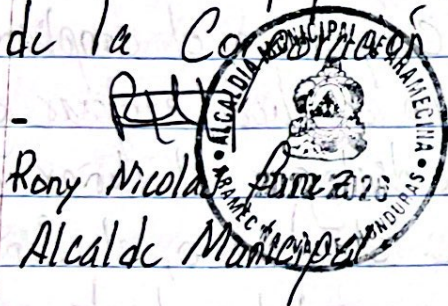 de la Corporación
-
Rony Nicolas
Alcalde Municipal
ALCALDIA MUNICIPAL DE ARAMECINA
HONDURAS